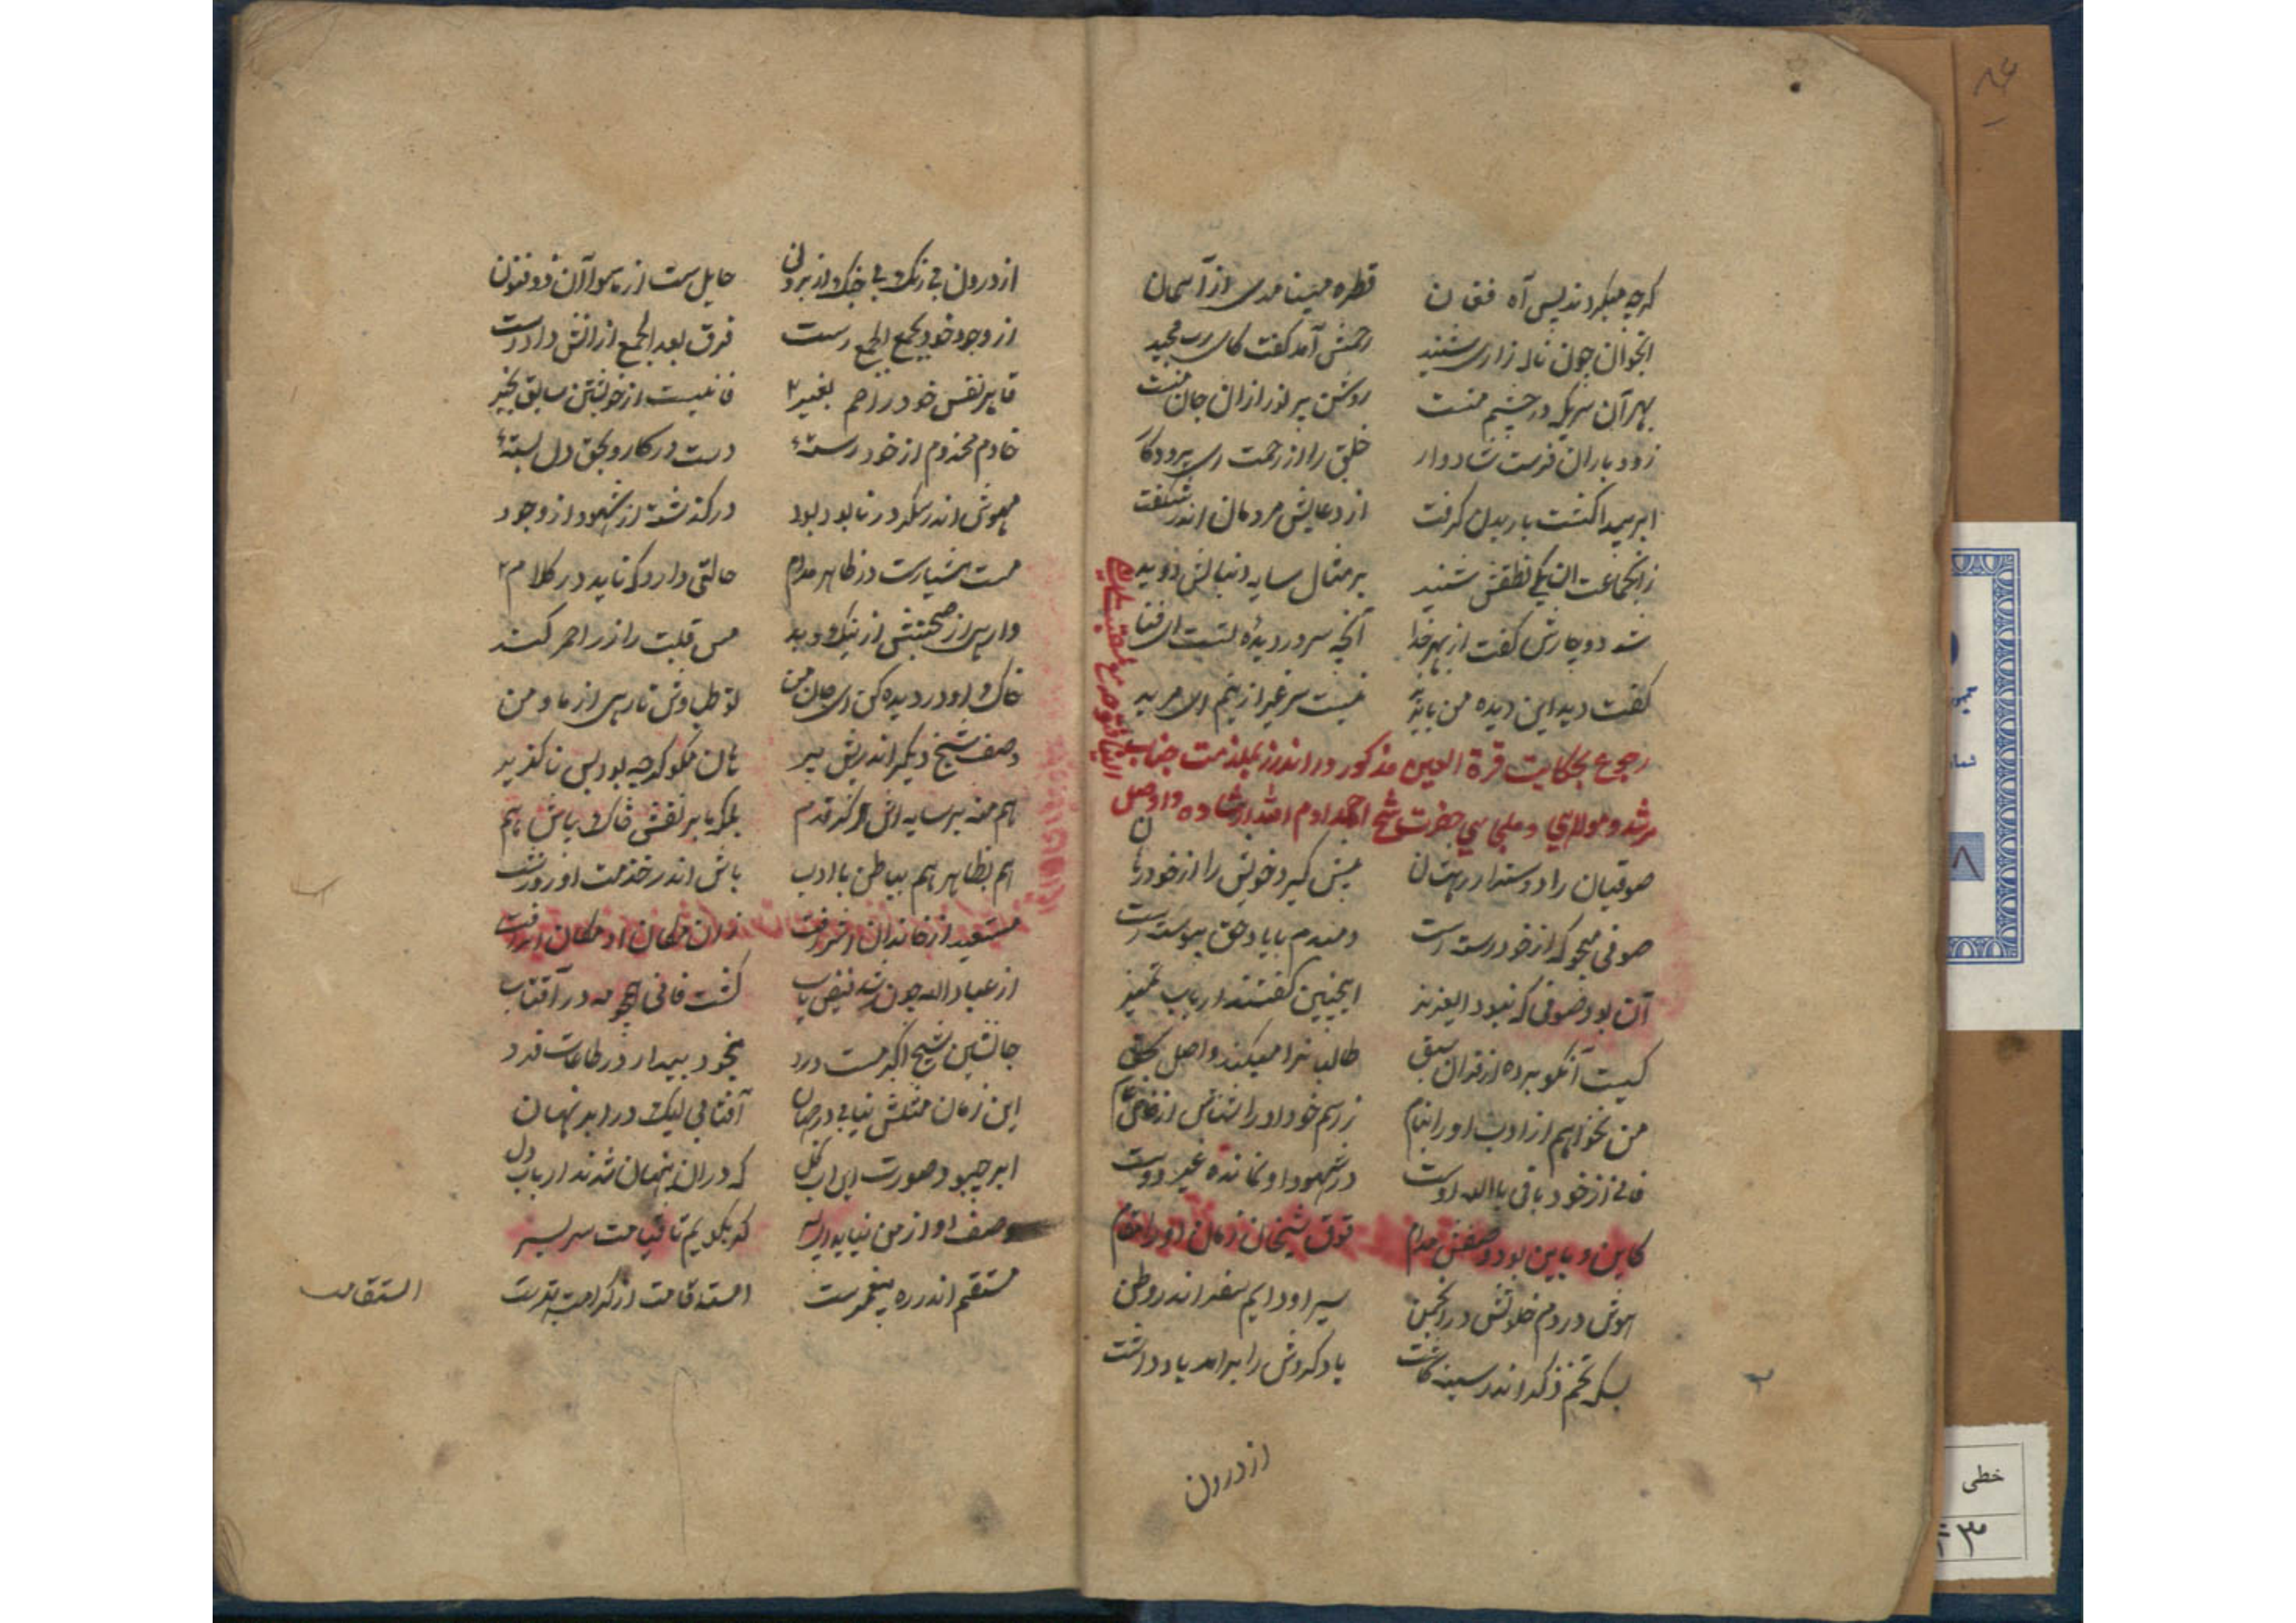 گرچه میکردند بس آه فغان قطره مینامدی از آسمان
انجوان چون ناله زاری شنید رحمش آمد گفت کای رب مجید
بهر آن سریکه در چشم منست روشن پر نور ازان جان منست
زود باران فرست شادوار خلق را از رحمت ای پروردکار
ابر پیدا گشت باریدن گرفت از دعایش مردمان اندر شگفت
زانجماعت ان یکی نطقش شنید بر مثال سایه دنبالش دوید
شد دوچارش گفت از بهر خدا آنچه سر در دیده تست ای فتا
گفت دید این دیده من بایزید نیست سر غیر ازینم ای مرید
رجوع بحکایت قرة العین مذکور در اندرز بملازمت جناب
مرشد و مولای و ملجایی حضرت شیخ احمد ادام الله ارشاده و اوصل
صوفیان را دوستدار ره‌تان میش گیرد خویش را از خود رهان
صوفی میجو که از خود رسته است دمبدم با یاد حق پیوسته است
آن بود صوفی که نبود ایعزیز اینچنین گفتند ارباب تمیز
کیست آنکو برده از قران سبق طالبانرا میکند واصل بحق
من نخواهم از ادب او را بنام ز اسم خود او را شناس از خاص عام
فانی از خود باقی بالله اوست در شهود او نمانده غیر دوست
کاین و باین بود وصفش مدام فوق شیخان زمان او را مقام
هوش در دم خلوتش در انجمن سیر او دایم سفر اندر وطن
بسکه تخم ذکر اندر سینه کاشت یاد کردش را براند یاد داشت
از درون
از درون بی رنگ بی جنگ از برون حایل ست از ماسوا آن ذو فنون
از وجود خود بجمع الجمع رست فرق بعد الجمع ازانش داد دست
قاهر نفس خود رزاحم بغیر فانیست از خویشتن سابق بخیر
خادم مخدوم از خود رسته دست در کار و بحق دل بسته
مهوش اندر سکر در نابود بود در گذشته از شهود از وجود
مست هشیارست در ظاهر مدام حالتی دارد که ناید در کلام
وارهی از صحبتش از نیک و بد مس قلبت را زر احمر کند
خاک او در دیده کن ای جان من تو طپاوش تا رهی از ما و من
وصف شیخ دیگر اندر پیش پیر هان مگو گرچه بود بس ناگزیر
هم منه بر سایه اش هرگز قدم بلکه با بر نفسش خاک باش هم
هم بظاهر هم بباطن با ادب باش اندر خدمت او روز شب
مستفید از خاندان اشرفت زان مکان او مکان اشرفت
از عباد الله چون شد فیض یاب گشت فانی همچو مه در آفتاب
جانشین شیخ اکبر هست درد بیخود بیدار در طاعات فرد
این زمان مثلش نیابی در جهان آفتابی لیک در ابر نهان
ابر چبود صورت این اب گل که در ان پنهان شدند ارباب دل
وصف او از من نیاید ای پسر گر بگویم تا قیامت سر بسر
مستقیم اندر ره پیغمبرست استقامت از کرامت برترست
استقامت
خطی